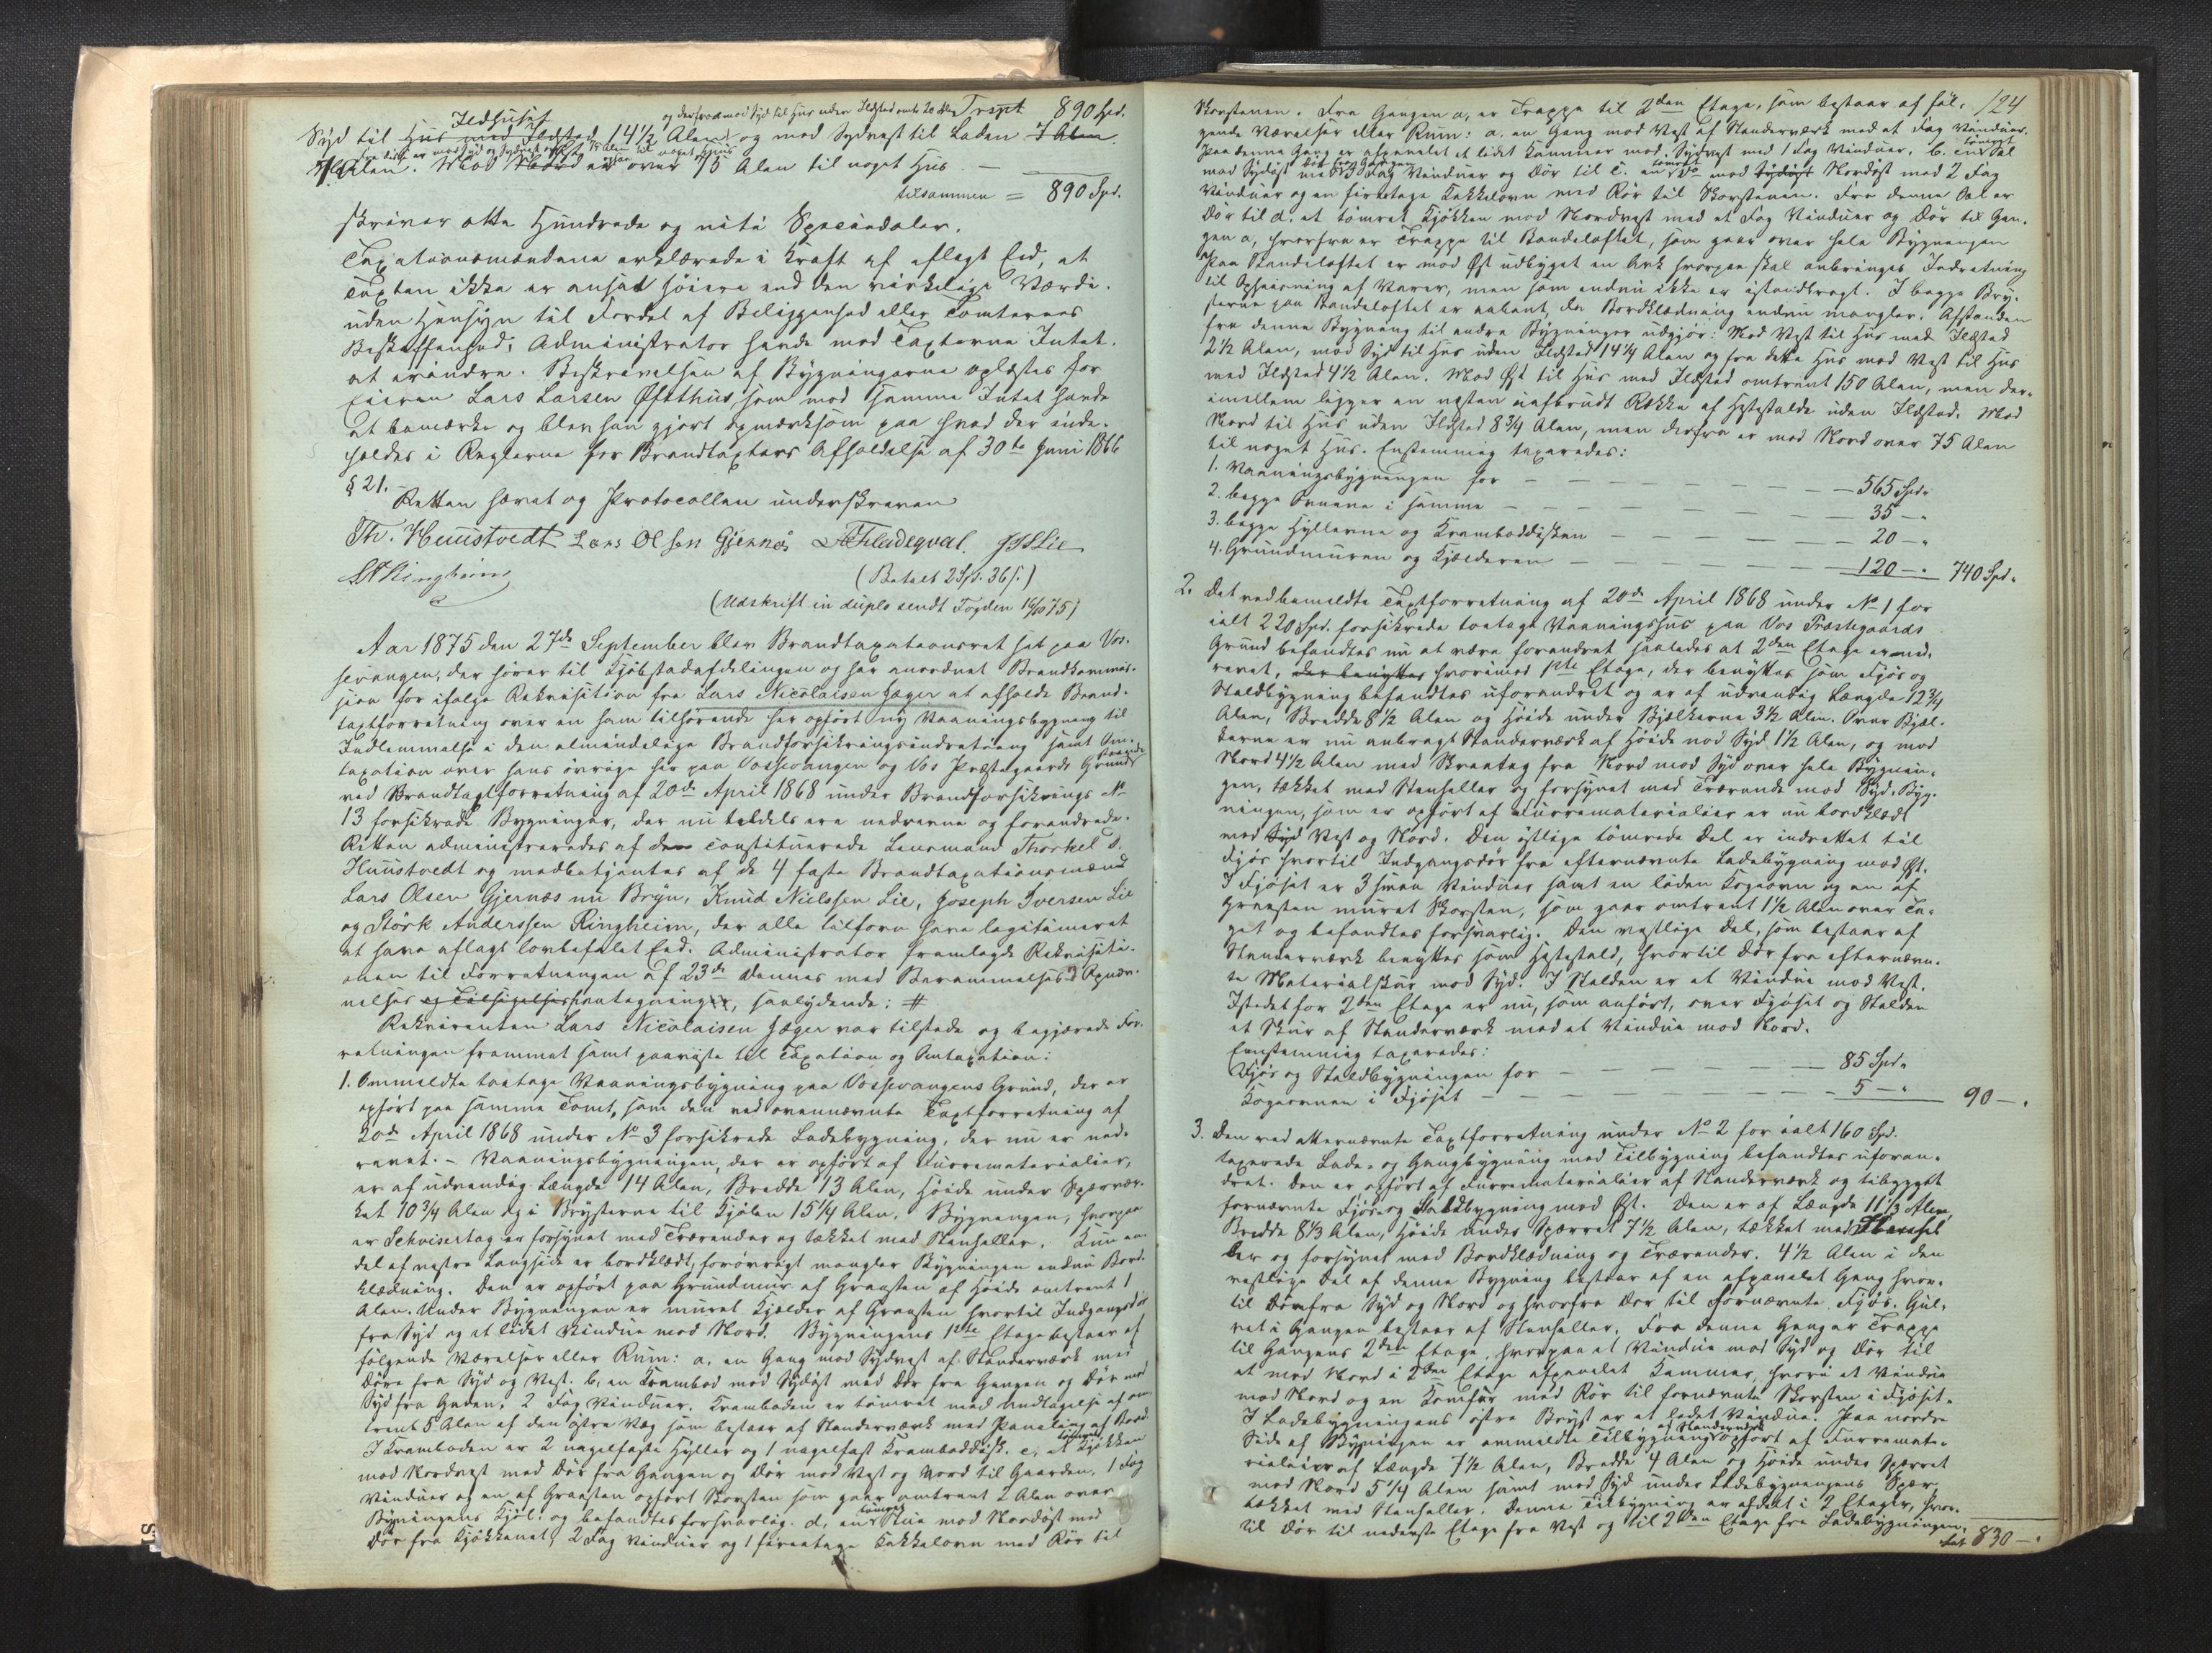 og derfra mod Syd til Hus uden Ildsted omtr. 20 Alen Trspt 890 Spd.
Ildhuset
Syd til Hus med Ildsted 14 1/2 Alen og mod Sydvest til Laden 7 Alen
7 Alen. Mod Nord er over 75 Alen til noget Hus —
tilsammen = 890 Spd.
skriver otte Hundrede og niti Speciedaler.
Taxationsmændene erklærede i Kraft af aflagt Eed, at
Taxten ikke er ansat höiere end den virkelige Værdi.
uden Hensyn til Fordel af Beliggenhed eller Tomternes
Beskaffenhed; Administrator havde mod Taxterne Intet
at erindre. Beskrivelsen af Bygningerne oplæstes for
Eieren Lars Larsen Øftthus, som mod samme Intet havde
at bemærke og blev han gjort opmærksom paa hvad der inde-
holdes i Reglerne for Brandtaxters Afholdelse af 30te Juni 1866
§ 21.
Retten hævet og Protocollen underskreven
Th. Huustvedt Lars Olsen Gjernæs JILie
SARingheim
(Betalt 2 Spd. 36 s.)
(Udskrift in duplo sendt Fogden 16/10 75)
Aar 1875 den 27de September blev Brandtaxationsret sat paa Vos-
sevangen, der hörer til Kjöbstadafdelingen og har anordnet Brandkommis-
sion for ifölge Rekvisition fra Lars Nicolaisen Jæger at afholde Brand-
taxtforretning over en ham tilhörende her opfört ny Vaaningsbygning til
Indlemmelse i den almindelige Brandforsikringsindretning samt Om-
taxation over hans övrige her paa Vossevangen og Vos Præstegaards Grund staaende
ved Brandtaxtforretning af 20de April 1868 under Brandforsikrings No
13 forsikrede Bygninger, der nu tildels ere nedrevne og forandrede.
Retten administreredes af den constituerede Lensmand Thorkel S.
Huustvedt og medbetjentes af de 4 faste Brandtaxationsmænd
Lars Olsen Gjernæs nu Bryn, Knud Nielssen Lie, Joseph Iversen Lie
og Störk Anderssen Ringheim, der alle tilforn have legitimeret
at have aflagt lovbefalet Eed. Administrator fremlagde Rekvisiti-
onen til Forretningen af 23de dennes med Berammelses, Opnæv-
nelses og Tilsigelsespaategninger, saalydende: #
Rekvirenten Lars Nicolaisen Jæger var tilstede og begjærede For-
retningen fremmet samt paaviste til Taxation og Omtaxation:
1. Ommeldte toetages Vaaningsbygning paa Vossevangens Grund, der er
opfört paa samme Tomt, som den ved ovennævnte Taxtforretning af
20de April 1868 under No 3 forsikrede Ladebygning, der nu er ned-
revet. – Vaaningsbygningen, der er opfört af Furrematerialier,
er af udvendig Længde 14 Alen, Bredde 13 Alen, Höide under Sperrevær-
ket 10 3/4 Alen og i Brysterne til Kjölen 15 1/4 Alen. Bygningen, hvorpaa
er Schveisertag er forsynet med Trærender og tækket med Stenheller. Kun en
del af vestre Langside er bordklædt, forövrigt mangler Bygningen endnu Bord-
klædning. Den er opfört paa Grundmur af Graasten af Höide omtrent 1
Alen. Under Bygningen er muret Kjelder af Graasten hvortil Indgangsdör
fra Syd og et lidet Vindue mod Nord. Bygningens 1ste Etage bestaar af
fölgende Værelser eller Rum: a. en Gang mod Sydvest af Standerværk med
Döre fra Syd og Vest. b, en Krambod mod Sydöst med Dör fra Gangen og Dör mod
Syd fra Gaden, 2 Fag Vinduer. Kramboden er tömret med Undtagelse af om-
trent 5 Alen af den östre Væg som bestaar af Standerværk med Paneling af Bord.
I Kramboden er 2 nagelfaste Hyller og 1 nagelfast Krambodsdisk. c, et tömret Kjökken
mod Nordvest med Dör fra Gangen og Dör mod Vest og Nord til Gaarden, 1 Fag
Vinduer og en af Graasten opfört Skorsten som gaar omtrent 2 Alen over
Bygningens Kjöl, og befandtes forsvarlig. d, en tömret Stue mod Nordöst med
Dör fra Kjökkenet, 2 Fag Vinduer og 1 fireetages Kakkelovn med Rör til
124
Skorstenen. Fra Gangen a, er Trappe til 2den Etage, som bestaar af föl-
gende Værelser eller Rum: a. en Gang mod Vest af Standerværk med et Fag Vinduer.
Paa denne Gang er afpanelet et lidet Kammer mod Sydvest med 1 Fag Vinduer. b. en tömret Sal
mod Sydöst med Dör fra Gangen 3 Fag Vinduer og Dör til c. en tömret do mod Sydöst Nordöst med 2 Fag
Vinduer og en fireetages Kakkelovn med Rör til Skorstenen. Fra denne Sal er
Dör til d. et tömret Kjökken mod Nordvest med et Fag Vinduer og Dör til Gan-
gen a, hvorfra er Trappe til Bandeloftet, som gaar over hele Bygningen
Paa Bandeloftet er mod Øst udbygget en Ark hvorpaa skal anbringes Indretning
til Opheisning af Varer, men som endnu ikke er istandbragt. I begge Bry-
sterne paa Bandeloftet er aabent, da Bordklædning endnu mangler. Afstanden
fra denne Bygning til andre Bygninger udgjör: Mod Vest til Hus med Ildsted
2 1/2 Alen, mod Syd til Hus uden Ildsted 14 1/4 Alen og fra dette Hus mod Vest til Hus
med Ildsted 4 1/2 Alen. Mod Øst til Hus med Ildsted omtrent 150 Alen, men der-
imellem ligger en næsten uafbrudt Række af Hestestalde uden Ildsted. Mod
Nord til Hus uden Ildsted 8 3/4 Alen, men derfra er mod Nord over 75 Alen
til noget Hus. Enstemmig taxeredes:
1. Vaaningsbygningen for — 565 Spd.
2. begge Ovnene i samme — 35 — "
3. begge Hyllerne og Krambodsdisken — 20 — "
4. Grundmuren og Kjelderen — 120 — " 740 Spd.
2. Det ved bemeldte Taxtforretning af 20de April 1868 under No 1 for
ialt 220 Spd. forsikrede toetages Vaaningshus paa Vos Præstegaards
Grund befandtes nu at være forandret saaledes at 2den Etage er ned-
revet, der benyttes hvorimod 1ste Etage, der benyttes som Fjös og
Staldbygning befandtes uforandret og er af udvendig Længde 12 3/4
Alen, Bredde 8 1/2 Alen og Höide under Bjelkerne 3 1/2 Alen. Over Bjel-
kerne er nu anbragt Standerværk af Höide mod Syd 1 1/2 Alen, og mod
Nord 4 1/2 Alen med Skraatag fra Nord mod Syd over hele Bygnin-
gen, tækket med Stenheller og forsynet med Trærende mod Syd. Byg-
ningen, som er opfört af Furrematerialier er nu bordklædt
mod Syd Vest og Nord. Den östlige tömrede Del er indrettet til
Fjös hvortil Indgangsdör fra efternævnte Ladebygning mod Øst.
I Fjöset er 3 smaa Vinduer samt en liden Kogeovn og en af
Graasten muret Skorsten, som gaar omtrent 1 1/2 Alen over Ta-
get og befandtes forsvarlig. Den vestlige Del, som bestaar af
Standerværk benyttes som Hestestald, hvortil Dör fra efternævn-
te Materialskur mod Syd. I Stalden er et Vindue mod Vest.
Istedetfor 2den Etage er nu, som anfört, over Fjöset og Stalden
et Skur af Standerværk med et Vindue mod Nord.
Eenstemmig taxeredes:
Fjös og Staldbygningen for — 85 Spd.
Kogeovnen i Fjöset — 5 — " 90 — "
3. Den ved atternævnte Taxtforretning under No 2 for ialt 160 Spd.
taxerede Lade- og Gangbygning med Tilbygning befandtes uforan-
dret. Den er opfört af Furrematerialier af Standerværk og tilbygget
fornævnte Fjös og Staldbygning mod Øst. Den er af Længde 11 1/3 Alen,
Bredde 8 1/3 Alen, Höide under Sperret 7 1/2 Alen, tækket med Stenhel
ler og forsynet med Bordklædning og Trærender. 4 1/2 Alen i den
vestlige Del af denne Bygning bestaar af en afpanelet Gang hvor-
til Dör fra Syd og Nord og hvorfra Dör til fornævnte Fjös. Gul-
vet i Gangen bestaar af Stenheller. Fra denne Gang er Trappe
til Gangens 2den Etage, hvorpaa et Vindue mod Syd og Dör til
et mod Nord i 2den Etage afpanelet Kammer, hvori et Vindue
mod Nord og en Komfur med Rör til fornævnte Skorsten i Fjöset.
I Ladebygningens östre Bryst er et lidet Vindue. Paa nordre
Side af Bygningen er ommeldte Tilbygning af Standerværk opfört af Furremate-
rialier af Længde 7 1/2 Alen, Bredde 4 Alen og Höide under Sperret
mod Nord 5 1/4 Alen samt mod Syd under Ladebygningens Sper,
tækket med Stenheller. Denne Tilbygning er afdelt i 2 Etager, hvor-
til Dör til nederste Etage fra Vest og til 2den Etage fra Ladebygningen.
Lat. 830 — "